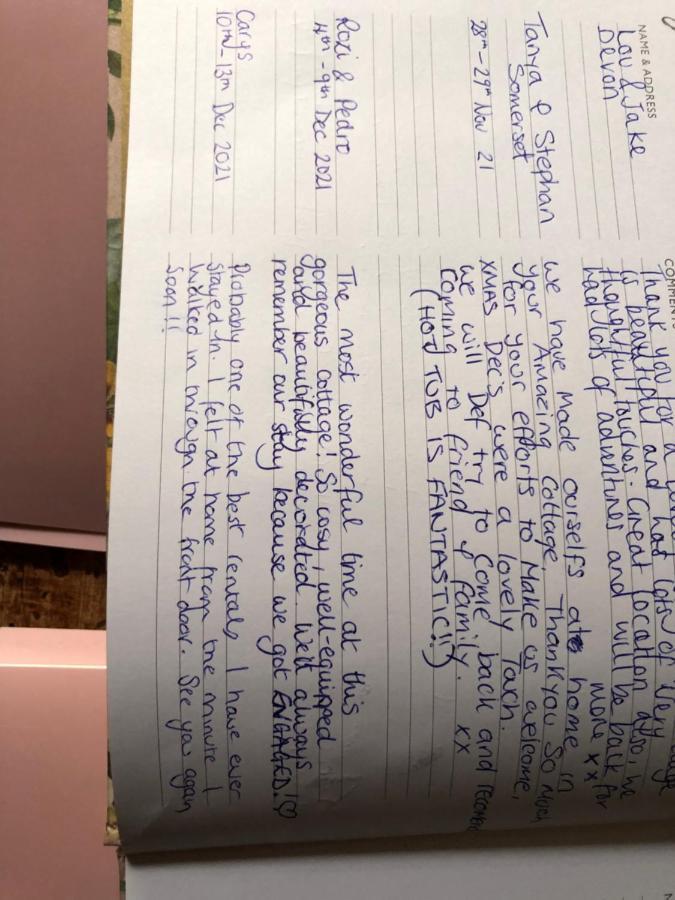 NAME & ADDRESS
COMMENTS
Lou & Jake
Devon
Thank you for a
is beautiful and had lots of very
thoughtful touches. Great location also, we
had lots of adventures and will be back for
more xx
Tanya & Stephan
Somerset
28th - 29th Nov 21
we have Made ourselfs at home in
your Amazing Cottage, Thank you so much
for your efforts to Make us welcome,
XMAS Dec's were a lovely Tach.
we will Def try to come back and
coming to friend & family. xx
(HOT TUB IS FANTASTIC!!)
Roxi & Pedro
4th - 9th Dec 2021
The most wonderful time at this
gorgeous cottage! So cosy, well-equipped
and beautifully decorated. We'll always
remember our stay because we got ENGAGED!♡
Carys
10th - 13th Dec 2021
Probably one of the best rentals I have ever
stayed in. I felt at home from the minute I
walked in through the front door. See you again
soon!!